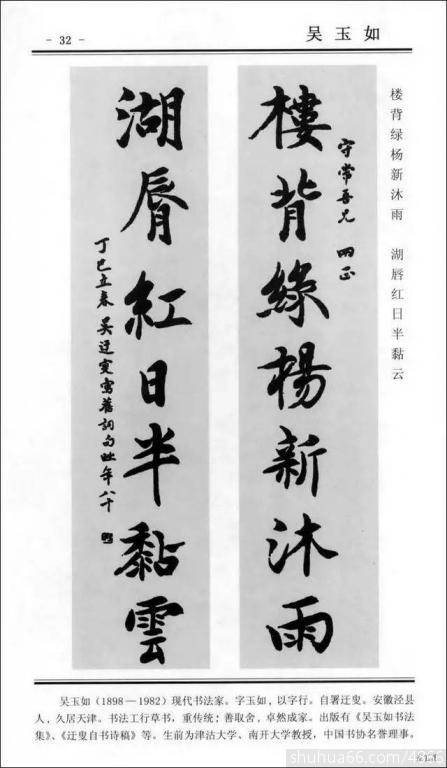 - 32 -
吴玉如
楼背绿杨新沐雨 湖唇红日半黏云
樓背綠楊新沐雨
守常吾兄 两正
湖脣紅日半黏雲
丁巳立春 吴迂叟寫舊詞句時年八十
吴玉如(1898—1982)现代书法家。字玉如,以字行。自署迂叟。安徽泾县
人,久居天津。书法工行草书,重传统;善取舍,卓然成家。出版有《吴玉如书法
集》、《迂叟自书诗稿》等。生前为津沽大学、南开大学教授,中国书协名誉理事。
shuhua66.com